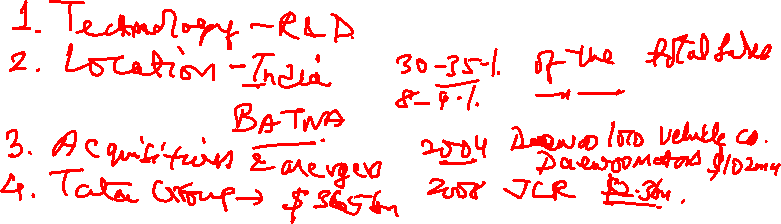 1. Technology - R&D
2. Location - India 30-35% of the total sales
8-9%
BATNA
3. Acquisitions & mergers 2004 Daewoo vehicle co.
Daewoo Motors $102mn
4. Tata Group → $365bn 2008 JLR $2.3bn.